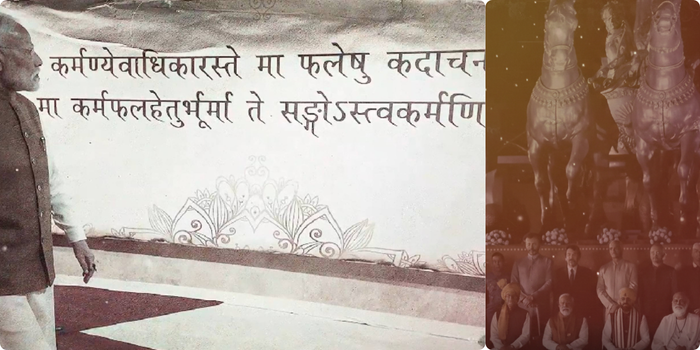 कर्मण्येवाधिकारस्ते मा फलेषु कदाचन
मा कर्मफलहेतुर्भूर्मा ते सङ्गोऽस्त्वकर्मणि